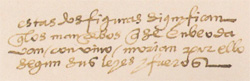 estas dos figuras significan
q̃ los mancebos q̃ se enbeoda
van / con vino / morian por ello
segun sus leyes y fueros